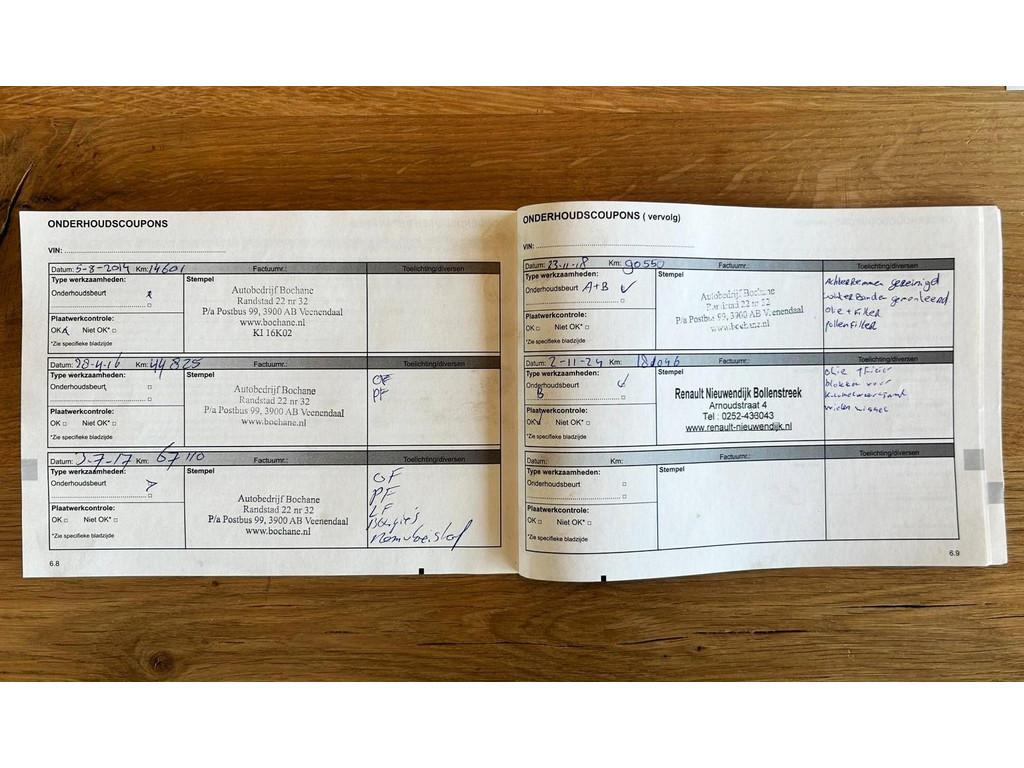 ONDERHOUDSCOUPONS
VIN:
Datum: 5-8-2014 Km: 14601 Factuurnr.: Toelichting/diversen
Type werkzaamheden: Stempel
Onderhoudsbeurt
Autobedrijf Bochane
Randstad 22 nr 32
P/a Postbus 99, 3900 AB Veenendaal
www.bochane.nl
KI 16K02
Plaatwerkcontrole:
OK Niet OK*
*Zie specifieke bladzijde
Datum: 28-4-16 Km: 44825 Factuurnr.: Toelichting/diversen
Type werkzaamheden: Stempel
Onderhoudsbeurt
Autobedrijf Bochane
Randstad 22 nr 32
P/a Postbus 99, 3900 AB Veenendaal
www.bochane.nl
OF
PF
Plaatwerkcontrole:
OK Niet OK*
*Zie specifieke bladzijde
Datum: 3-7-17 Km: 67110 Factuurnr.: Toelichting/diversen
Type werkzaamheden: Stempel
Onderhoudsbeurt
Autobedrijf Bochane
Randstad 22 nr 32
P/a Postbus 99, 3900 AB Veenendaal
www.bochane.nl
OF
PF
LF
Bougie's
Remvloeistof
Plaatwerkcontrole:
OK Niet OK*
*Zie specifieke bladzijde
6.8
ONDERHOUDSCOUPONS ( vervolg)
VIN:
Datum: 23-11-18 Km: 90550 Factuurnr.: Toelichting/diversen
Type werkzaamheden: Stempel
Onderhoudsbeurt A+B
Autobedrijf Bochane
Randstad 22 nr 32
P/a Postbus 99, 3900 AB Veenendaal
www.bochane.nl
Achterremmen gereinigd
olie + filter
pollenfilter
Plaatwerkcontrole:
OK Niet OK*
*Zie specifieke bladzijde
Datum: 2-11-24 Km: 181046 Factuurnr.: Toelichting/diversen
Type werkzaamheden: Stempel
Onderhoudsbeurt
B
Renault Nieuwendijk Bollenstreek
Arnoudstraat 4
Tel : 0252-436043
www.renault-nieuwendijk.nl
olie
blokken voor
Plaatwerkcontrole:
OK Niet OK*
*Zie specifieke bladzijde
Datum: Km: Factuurnr.: Toelichting/diversen
Type werkzaamheden: Stempel
Onderhoudsbeurt
Plaatwerkcontrole:
OK Niet OK*
*Zie specifieke bladzijde
6.9